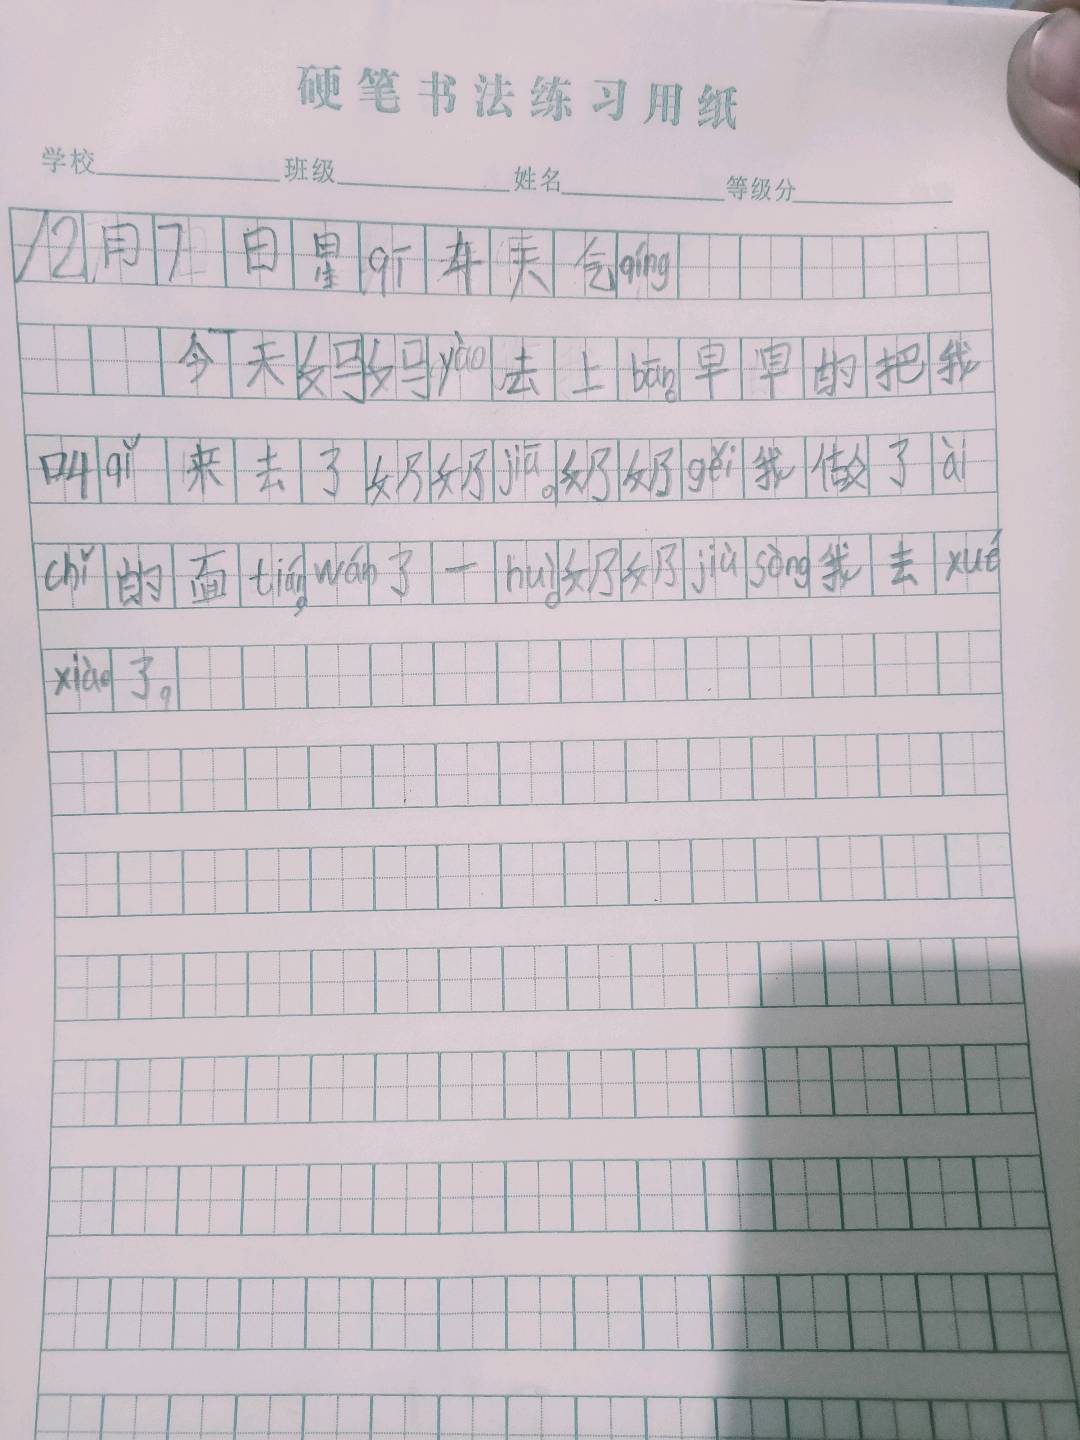 硬笔书法练习用纸
学校 班级 姓名 等级分
12月7日星qī 天气qíng
今天妈妈yào去上bān。早早的把我
叫qǐ来去了奶奶jiā。奶奶gěi我做了ài
chǐ的面 wán了一huì。奶奶jiù sòng我去xué
xiào了。